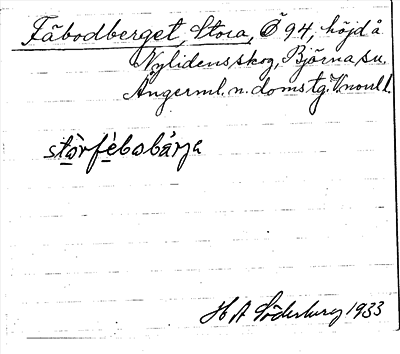 Fäbodberget, Stora, Ö 94, höjd å
Nylidens skog, Björna sn.
Ångerml. n. domstg. V norrl.
stòrfèbobárja
H A Söderberg 1933